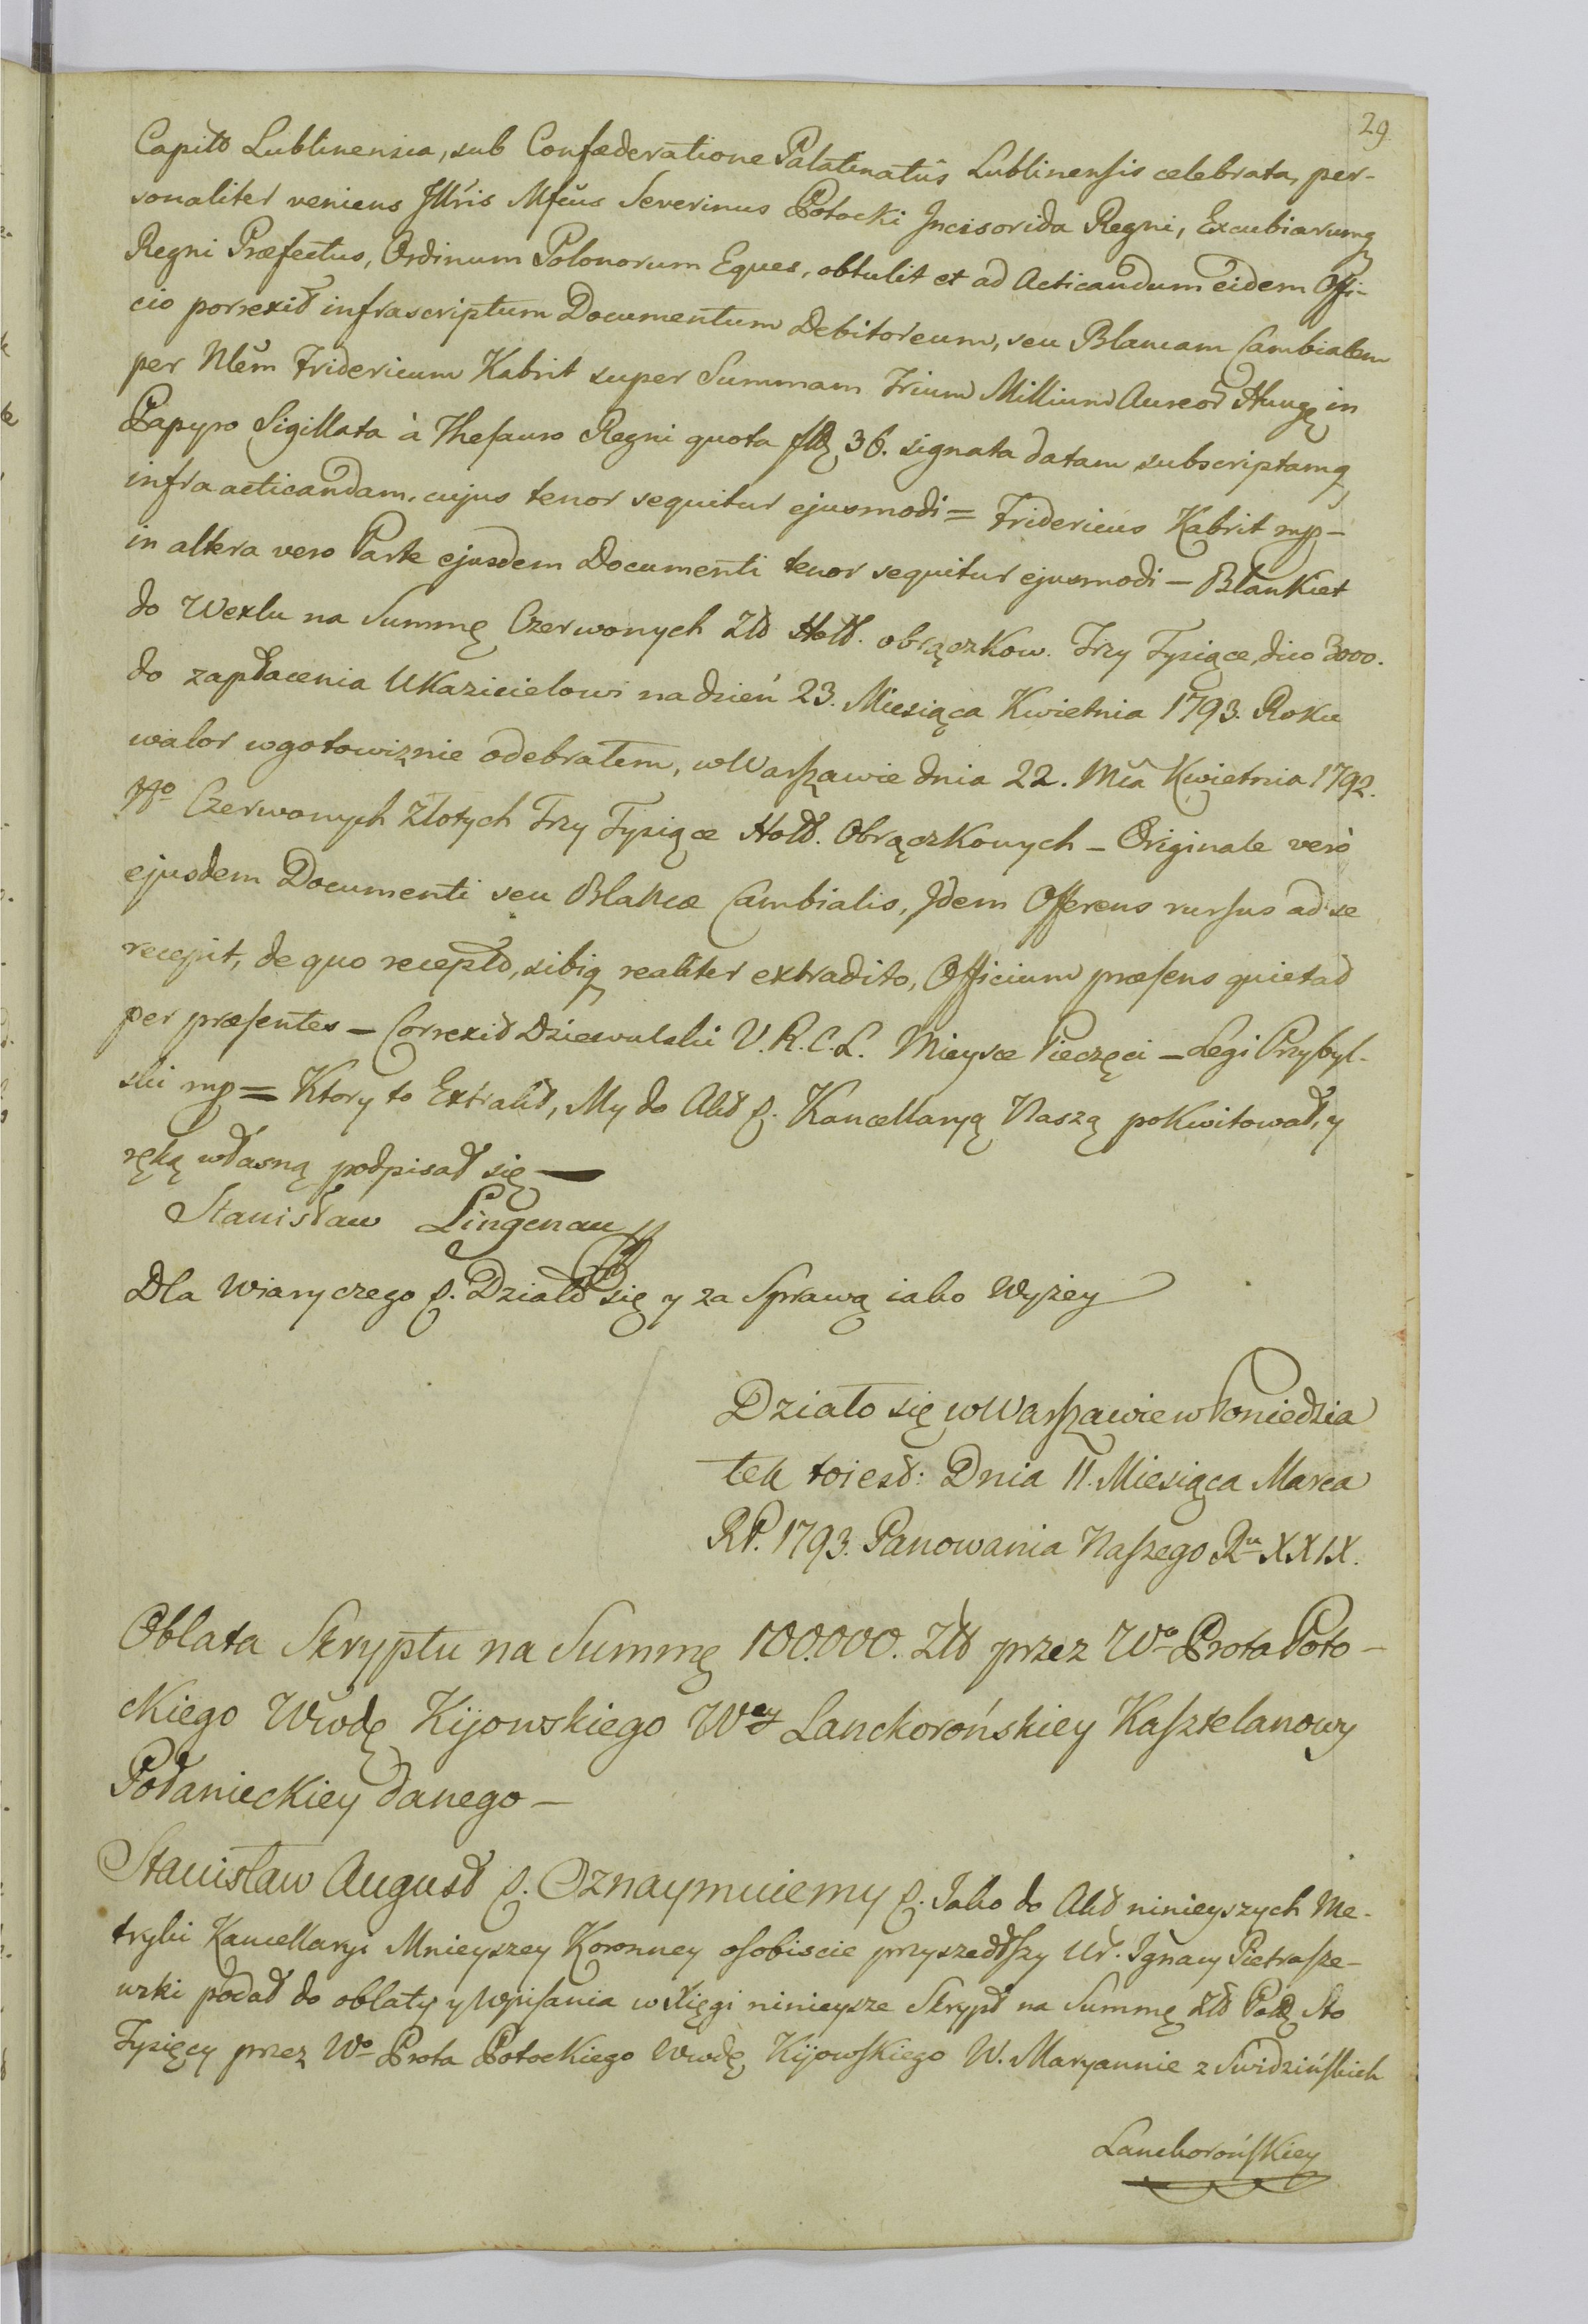 29.
Capitl Lublinensia, sub Confæderatione Palatinatûs Lublinensis celebrata, per-
sonaliter veniens Jllris Mfcus Severinus Potocki Jncisorida Regni, Excubiarumq
Regni Præfectus, Ordinum Polonorum Eques, obtulit et ad Acticandum eidem Offi-
cio porrexit infrascriptum Documentum Debitoreum, seu Blancam Cambialem
per Nlem Fridericum Kabrit super Summam Trium Millium Aureor Hung in
Papyro Sigillata à Thesauro Regni quota fl 36. signata datam subscriptamq
infra acticandam. cujus tenor sequitur ejusmodi = Fridericus Kabrit mp –
in altera vero Parte ejusdem Documenti tenor sequitur ejusmodi – Blankiet
do Wexlu na Summę Czerwonych Zł Holl. obrączkow. Trzy Tysiące, dico 3000.
do zapłacenia Ukazicielowi na dzień 23. Miesiąca Kwietnia 1793. Roku
walor w gotowiznie odebrałem, w Warszawie dnia 22. Mca Kwietnia 1792.
No Czerwonych Złotych Trzy Tysiące Holl. Obrączkowych – Originale verò
ejusdem Documenti seu Blancæ Cambialis, Jdem Offerens rursus ad se
recepit, de quo recepto, sibiq realiter extradito, Officium præsens quietat
per præsentes – Correxit Dziewulski V.R.C.L. Mieysce Pieczęci – Legi Przybyl-
ski mp = Ktory to Extrakt, My do Akt p. Kancellaryą Naszą pokwitował, y
ręką własną podpisał się —
Stanisław Lingenau
Dla Wiary czego p. Działo się y za Sprawą iako Wyżey
Działo się w Warszawie w Poniedzia
łek toiest: Dnia 11. Miesiąca Marca
RP. 1793. Panowania Naszego Ru XXIX.
Oblata Skryptu na Summę 100.000. Zł przez Wo Prota Poto-
ckiego Wwodę Kijowskiego Wey Lanckorońskiey Kasztelanowy
Połanieckiey danego –
Stanisław August p. Oznaymuiemy p. Iako do Akt ninieyszych Me-
tryki Kancellaryi Mnieyszey Koronney osobiscie przyszedłszy Ur. Ignacy Pietrasze-
wski podał do oblaty y wpisania w Xięgi ninieysze Skrypt na Summę Zł Pol Sto
Tysięcy przez Wo Prota Potockiego Wwodę Kijowskiego W. Maryannie z Swidzińskich
Lanckorońskiey